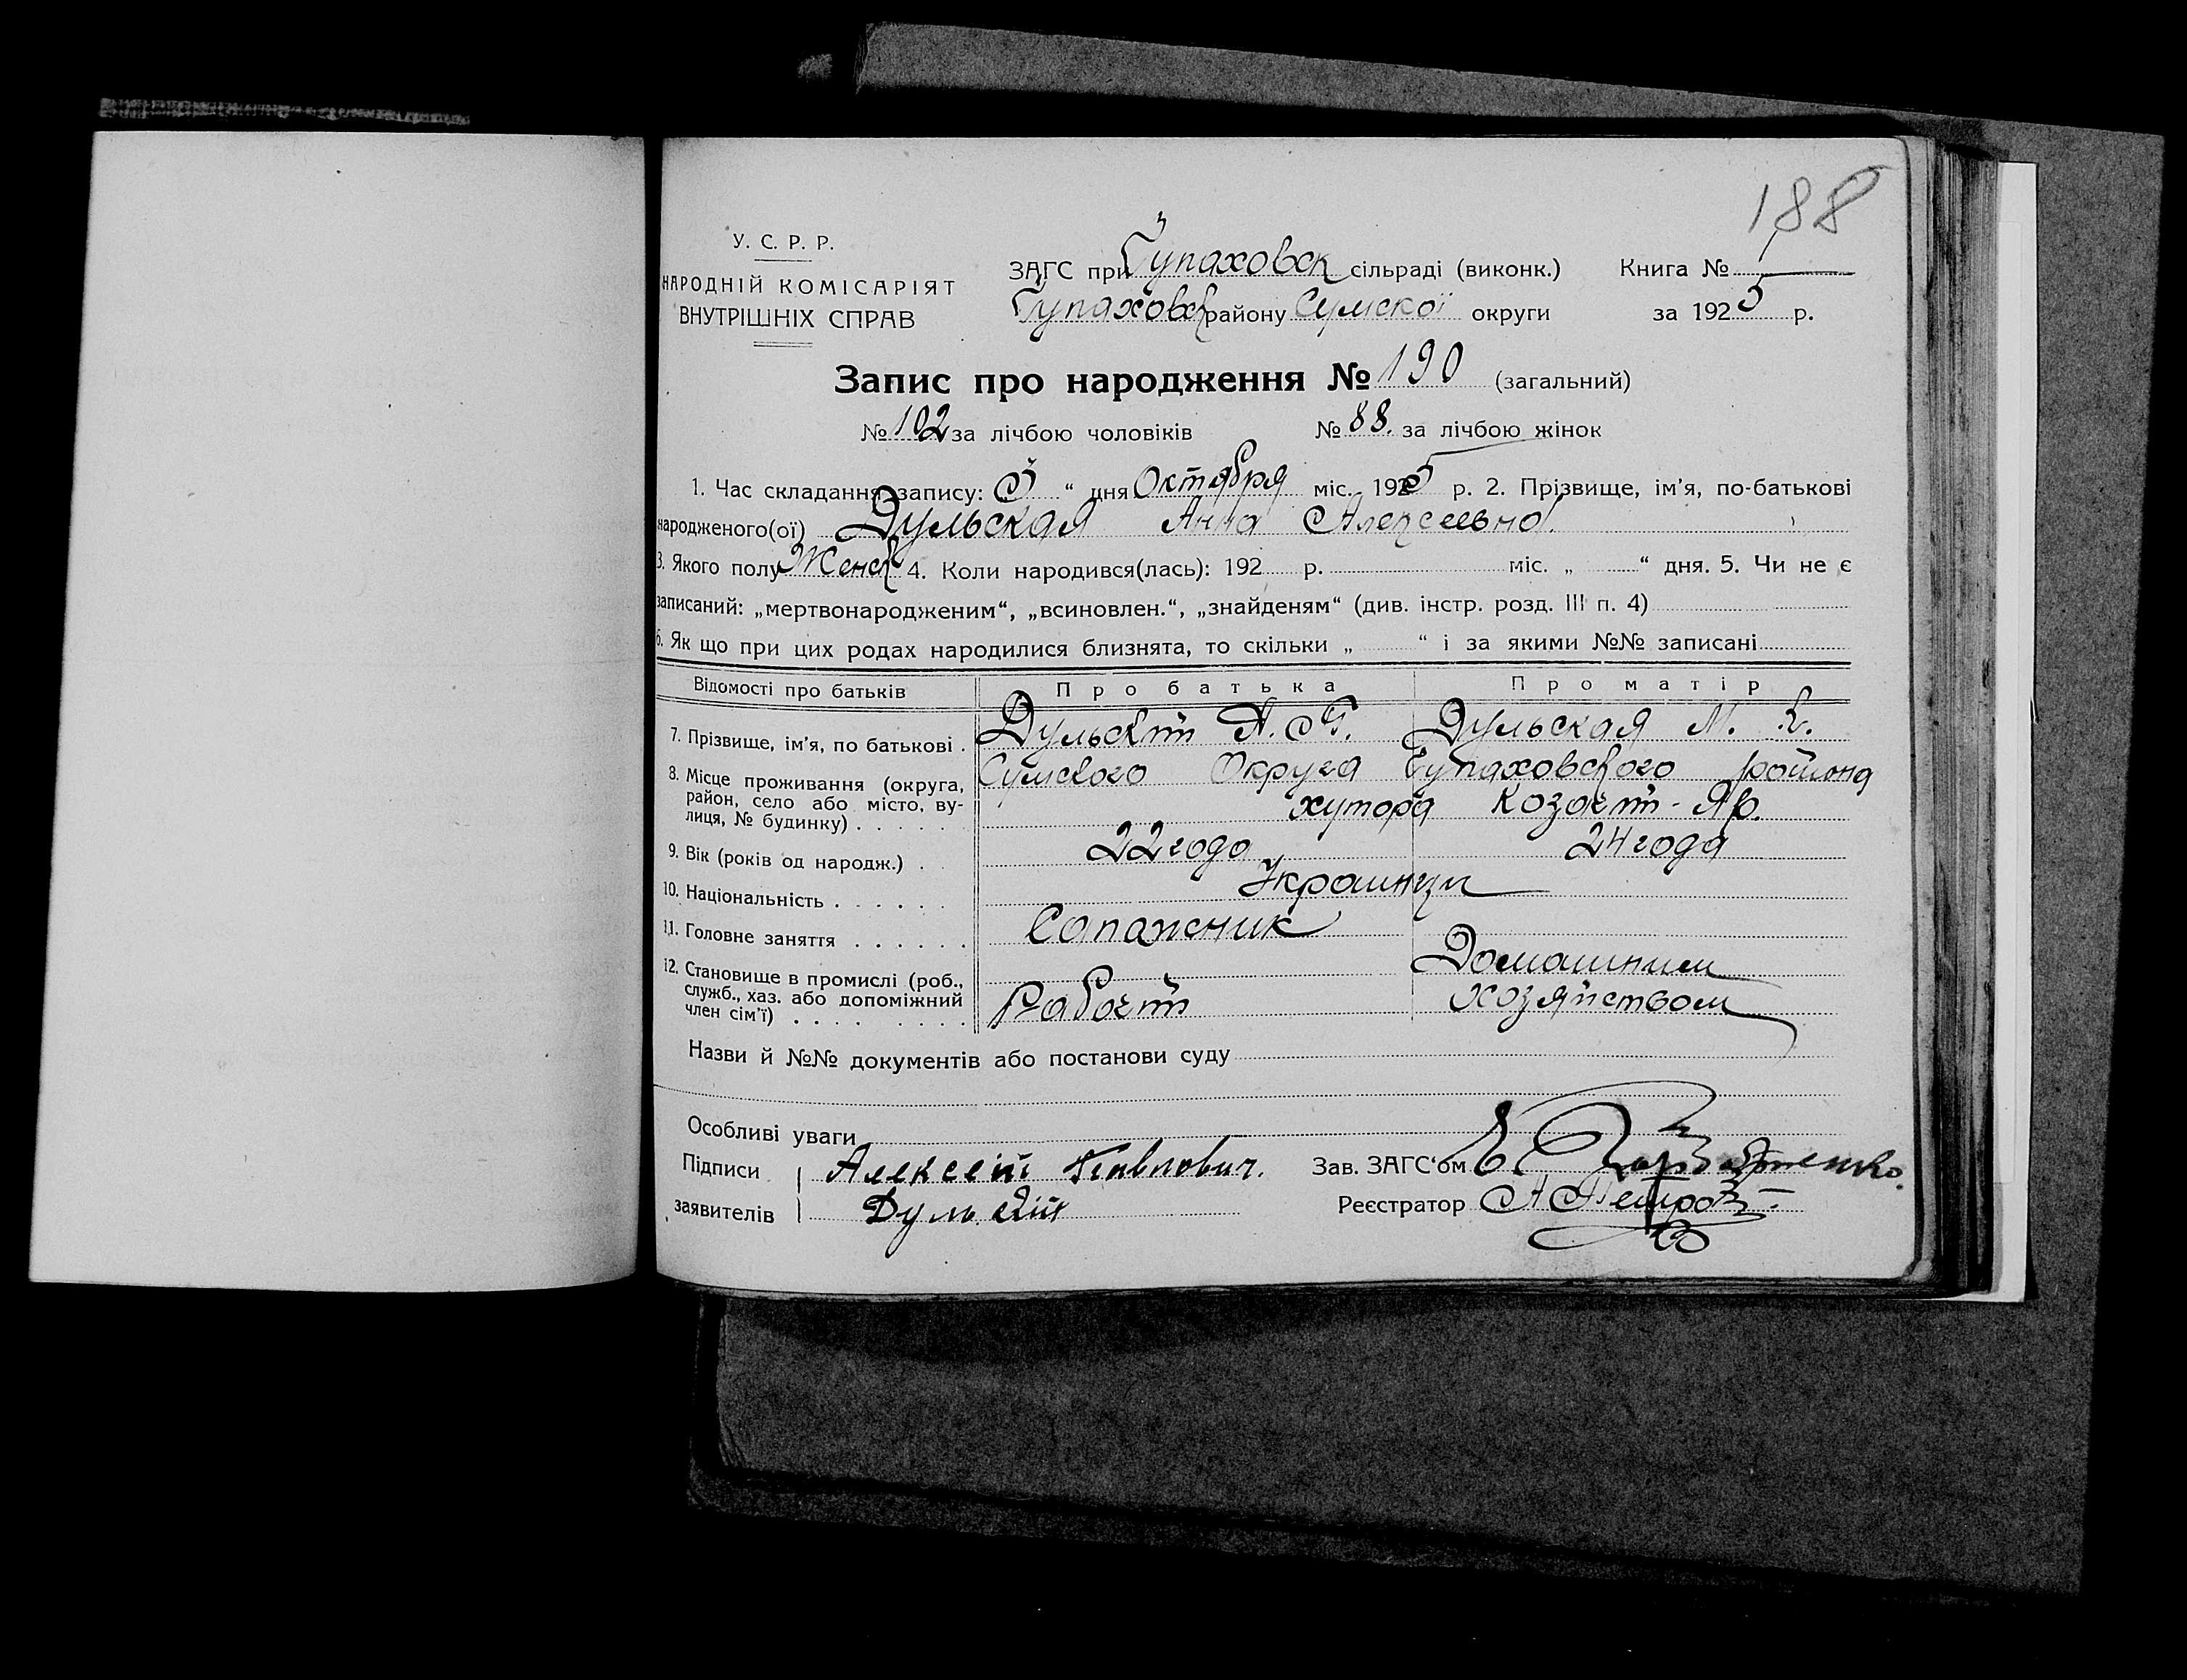 188
У. С. Р. Р.
НАРОДНІЙ КОМІСАРІЯТ
ВНУТРІШНІХ СПРАВ
ЗАГС при Тупаховск сільраді (виконк.) Книга №
Тупаховск району Сумской округи за 1925 р.
Запис про народження № 190 (загальний)
№ 102 за лічбою чоловіків № 88. за лічбою жінок
1. Час складання запису: 5 “ дня Октября міс. 1925 р. 2. Прізвище, ім’я, по-батькові
народженого(ої) Дульская Анна Алексеевна.
3. Якого полу Женск 4. Коли народився(лась): 192 р. міс. „ “ дня. 5. Чи не є
записаний: „мертвонародженим“, „всиновлен.“, „знайденям“ (див. інстр. розд. III п. 4)
6. Як що при цих родах народилися близнята, то скільки „ “ і за якими №№ записані
Відомості про батьків Про батька Про матір
7. Прізвище, ім’я, по батькові . Дульский А. П. Дульская М. Е.
8. Місце проживання (округа, район, село або місто, ву-
лиця, № будинку) . . . . . Сумского Округа Тупаховского района
хутора Козачий-Яр.
9. Вік (років од народж.) . 22 года 24 года
10. Національність . . . . . . Украинцы
11. Головне заняття . . . . . . Сапажник
12. Становище в промислі (роб.,
служб., хаз. або допоміжний
член сім’ї) . . . . . . . . Рабочий Домашним
хозяйством
Назви й №№ документів або постанови суду
Особливі уваги
Підписи Алексей Павлович. Зав. ЗАГС‘ом
заявителів Дульский Реєстратор А Петров